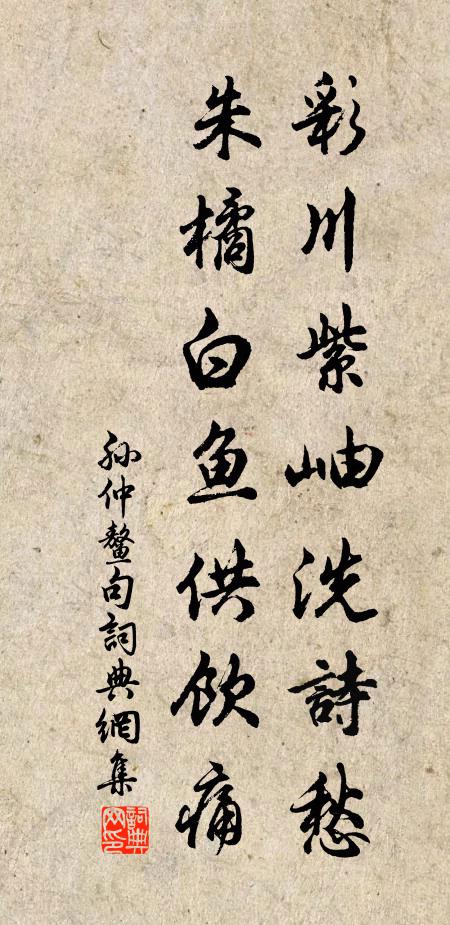 彩川紫岫洗詩愁
朱橘白鱼供飲痛
孙仲鳌句詞典網集
詞典
网印